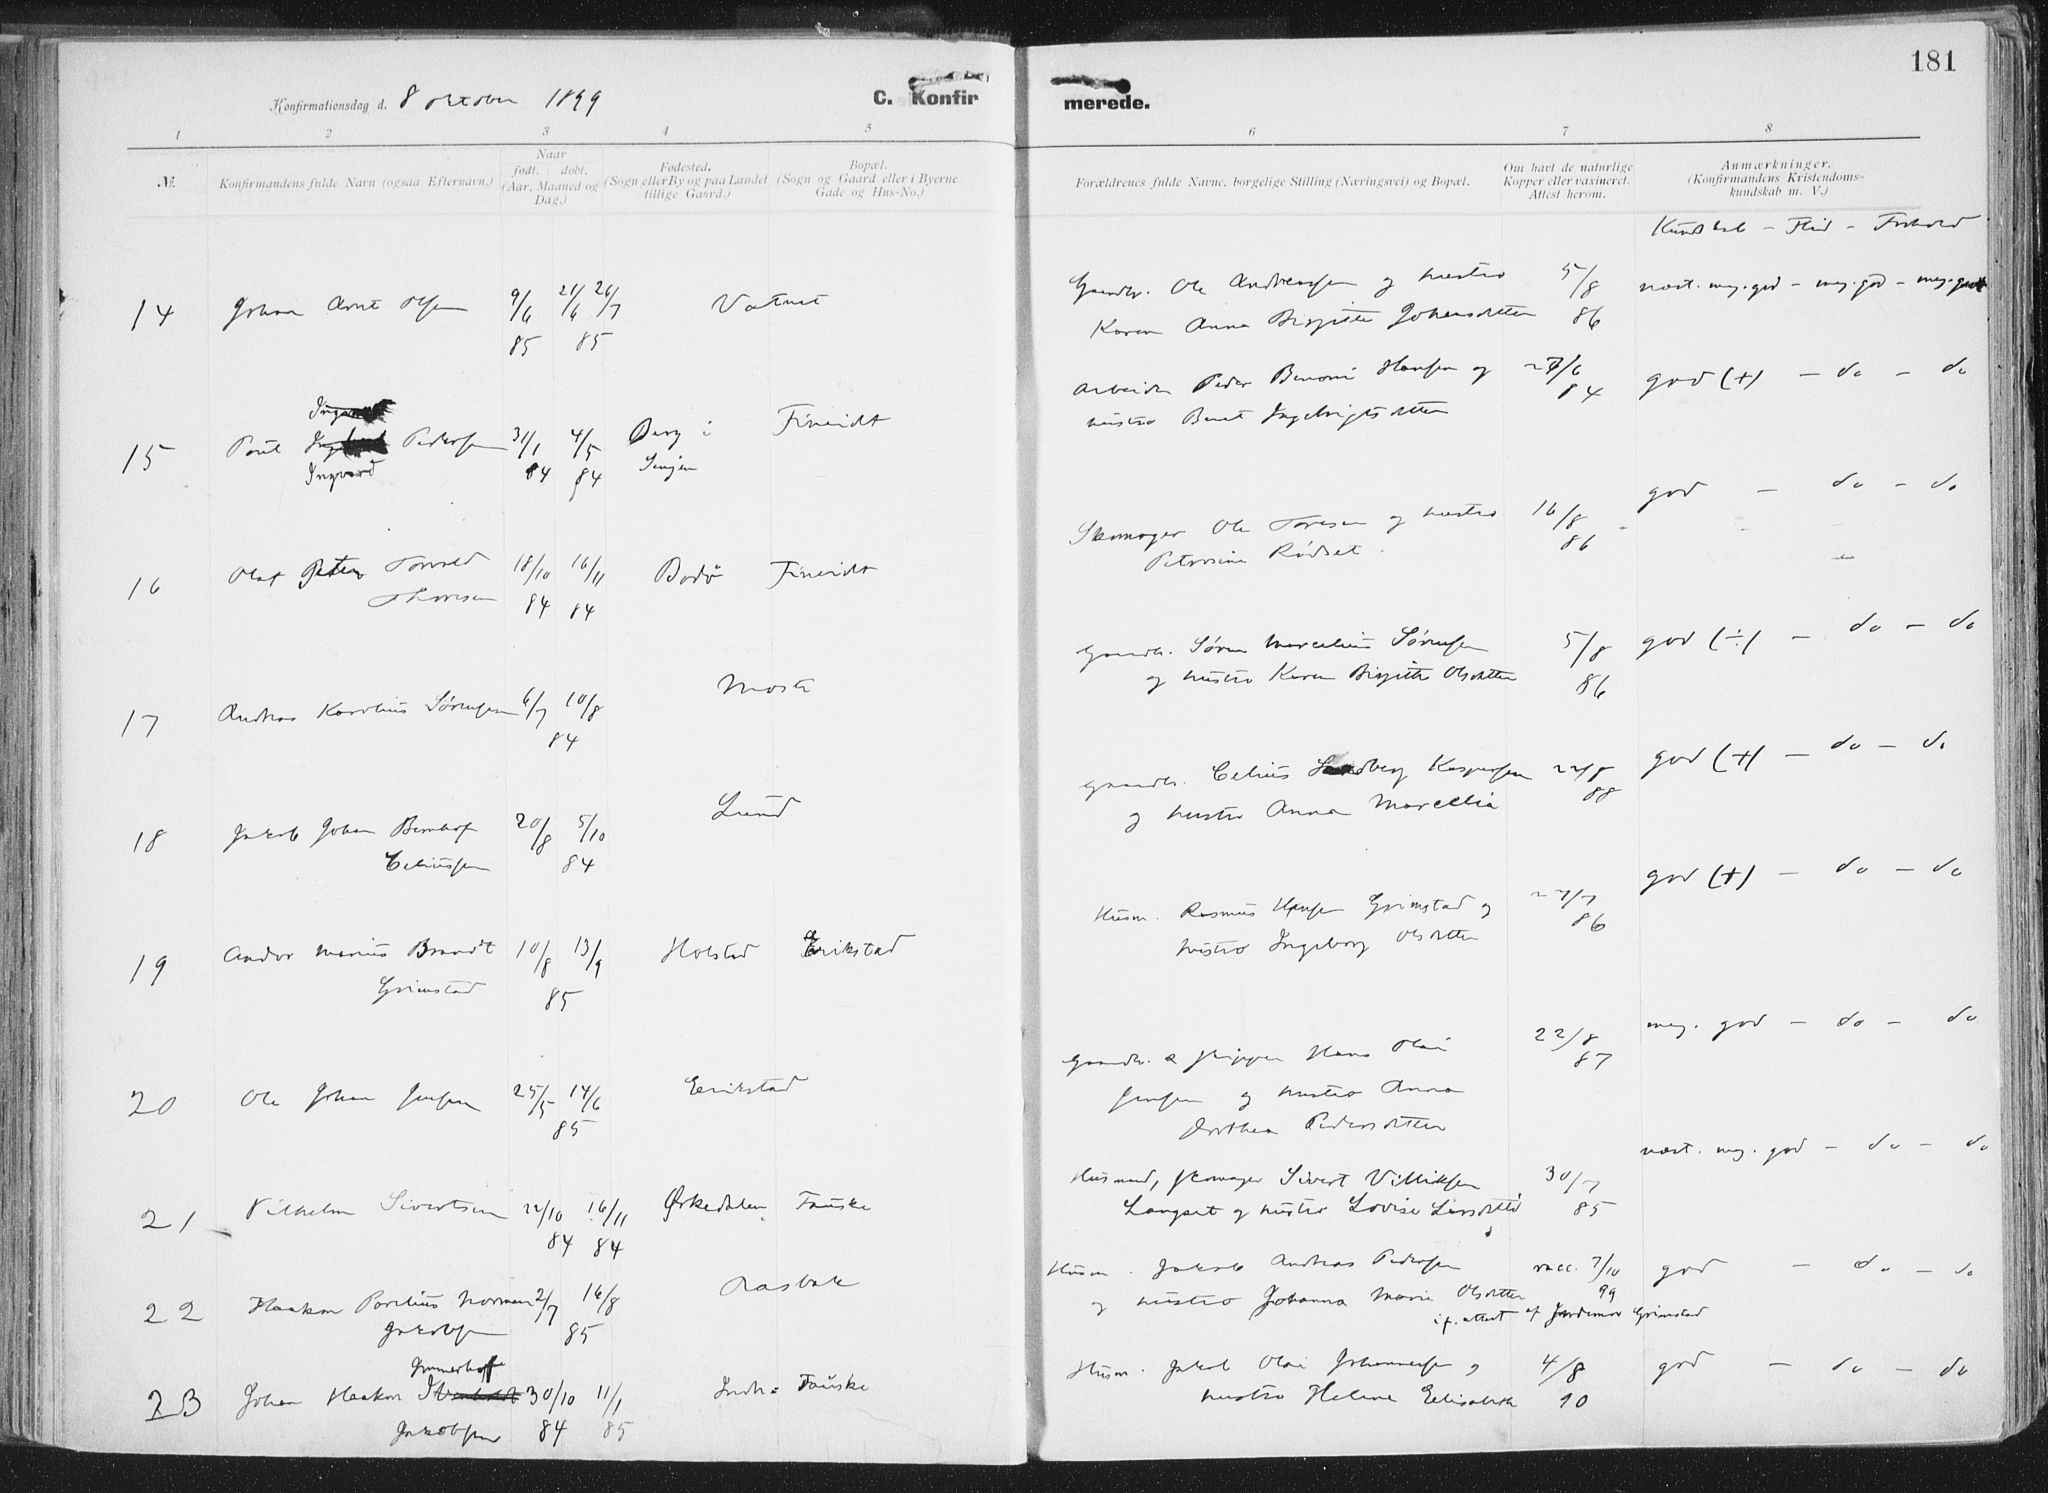 181
Konfirmationsdag d. 8 october 1899
C. Konfirmerede.
1 2 3 4 5 6 7 8
№.
Konfirmandens fulde Navn (ogsaa Efternavn.)
Naar
født. døbt.
(Aar, Maaned og
Dag.)
Fødested.
(Sogn eller By og paa Landet
tillige Gaard.)
Bopæl.
(Sogn og Gaard eller i Byerne
Gade og Hus-No.)
Forældrenes fulde Navne, borgelige Stilling (Næringsvei) og Bopæl.
Om havt de naturlige
Kopper eller vaxineret.
Attest herom.
Anmærkninger.
(Konfirmandens Kristendoms-
kundskab m. V.)
Kundskab - Flid - Forhold
14 Johan Arnt Olsen 9/6 85 21/6 26/7 85 Vatnet
Gaardbr. Ole Andreassen og hustro 5/8
Karen Anna Birgitte Johansdtter 86
næst. meg. god - meg. god - meg. godt
15 Poul Pedersen 31/1 84 4/5 84 Berg i Fineidt
Ingvard Senjen
Arbeider Peder Benoni Hansen og 27/6
hustro Berit Ingebrigtsdtter 84
god (+) - do - do
16 Olaf Peter Torvald 18/10 16/11 Bodø Fineidt
Thoresen 84 84
Skomager Ole Toresen og hustro 16/8
Petrosine Rødset. 86
god - do - do
17 Andreas Karolius Sørensen 6/7 10/8 Mosti
84
Gaardbr. Søren Marcelius Sørensen 5/8
og hustro Karen Birgitte Olsdtter 86
god (÷) - do - do
18 Jakob Johan Bernhof 20/8 5/10 Lund
Celiussen 84
Gaardbr. Celius Kaspersen 22/8
og hustro Anna Marcellia 88
god (+) - do - do
19 Andor Marius Brandt 10/8 13/9 Holstad Erikstad
Grimstad 85
Husm. Rasmus Hansen Grimstad og 27/7
hustro Ingeborg Olsdtter 86
god (+) - do - do
20 Ole Johan Jensen 25/5 14/6 Erikstad
85
Gaardbr. & skipper Hans Olai 22/8
Jensen og hustro Anna 87
Dorthea Pedersdtter
meg. god - do - do
21 Vilhelm Sivertsen 22/10 16/11 Ørkedalen Fauske
84 84
Husmand, skomager Sivert Villiksen 30/7
Langset og hustro Lovise Larsdtter 85
næst. meg. god - do - do
22 Haakon Parelius Norman 2/7 16/8 Lasbak
Jakobsen 85
Husm. Jakob Andreas Pedersen vacc. 7/10
og hustro Johanna Marie Olsdtter 99
if. attest af Jordemor Grimstad
god - do - do
Immerhoff
23 Johan Haakon 30/10 11/1 Indr. Fauske
Jakobsen 84 85
Husm. Jakob Olai Johannessen og 4/8
hustro Helene Elisabeth 90
god - do - do